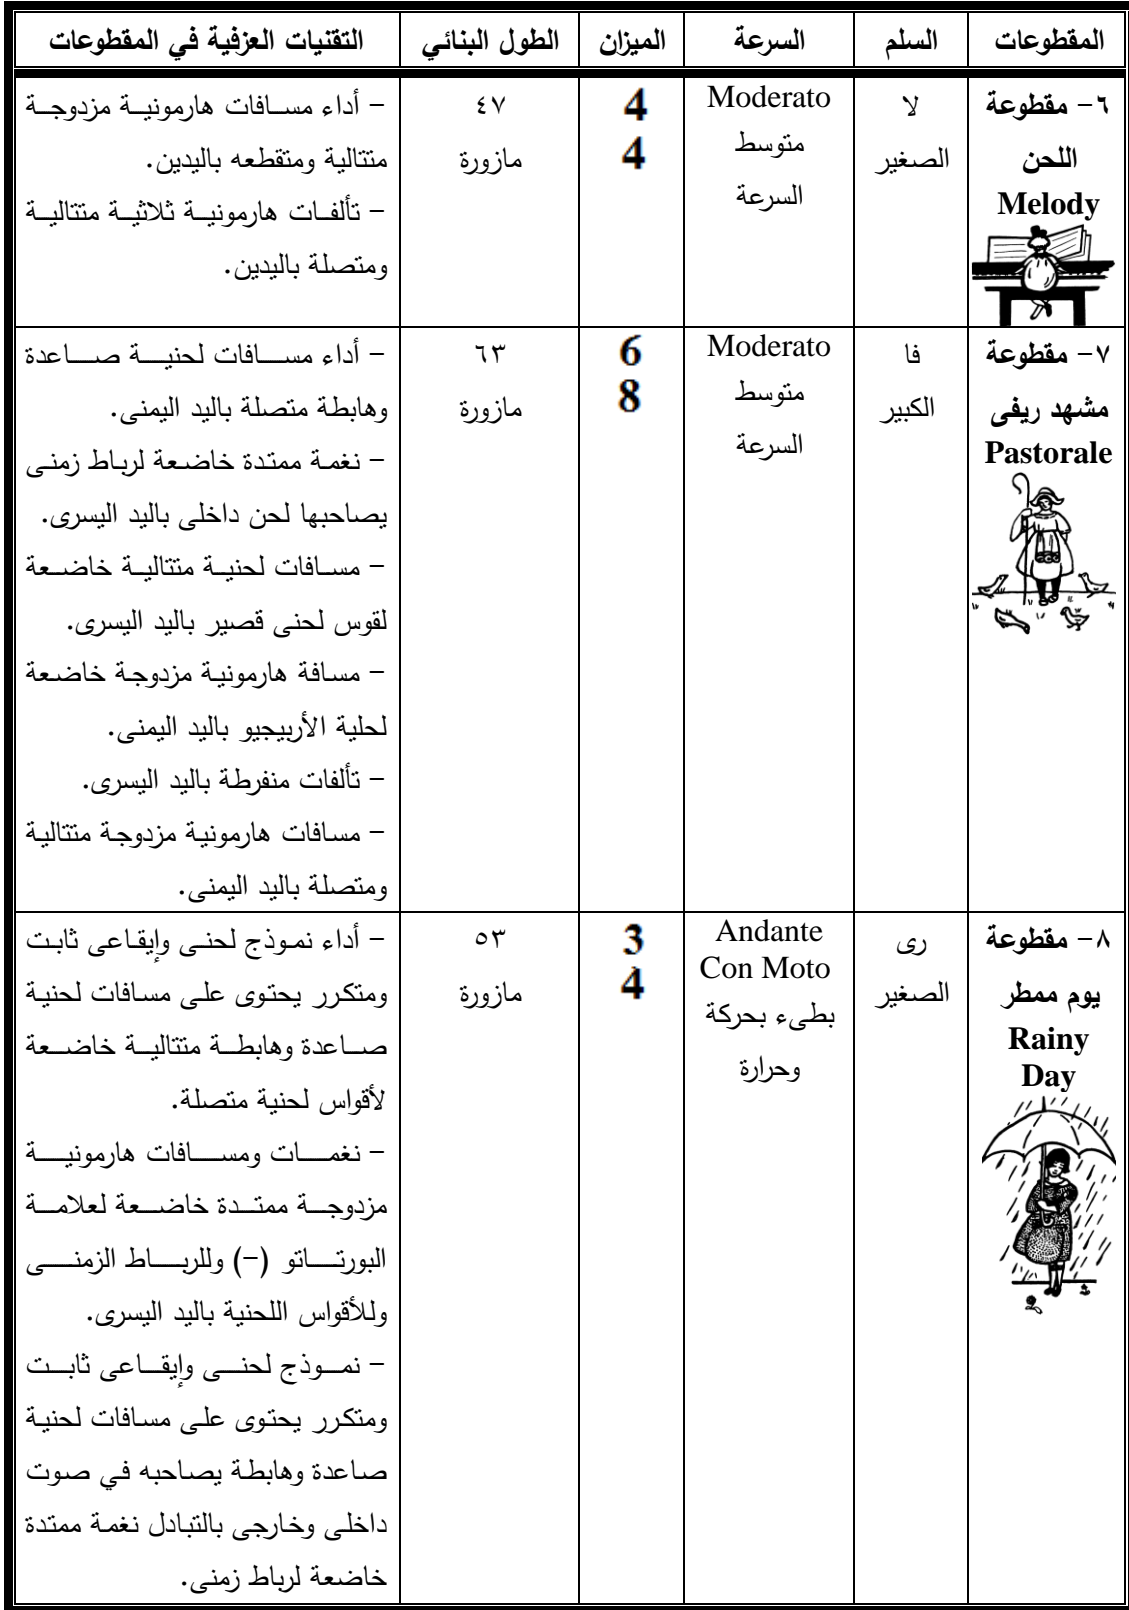 المقطوعات السلم السرعة الميزان الطول البنائي التقنيات العزفية في المقطوعات
٦- مقطوعة
اللحن
Melody
لا
الصغير
Moderato
متوسط
السرعة
4
4
٤٧
مازورة
- أداء مسافات هارمونية مزدوجة
متتالية ومتقطعه باليدين.
- تألفات هارمونية ثلاثية متتالية
ومتصلة باليدين.
٧- مقطوعة
مشهد ريفى
Pastorale
فا
الكبير
Moderato
متوسط
السرعة
6
8
٦٣
مازورة
- أداء مسافات لحنية صاعدة
وهابطة متصلة باليد اليمنى.
- نغمة ممتدة خاضعة لرباط زمنى
يصاحبها لحن داخلى باليد اليسرى.
- مسافات لحنية متتالية خاضعة
لقوس لحنى قصير باليد اليسرى.
- مسافة هارمونية مزدوجة خاضعة
لحلية الأربيجيو باليد اليمنى.
- تألفات منفرطة باليد اليسرى.
- مسافات هارمونية مزدوجة متتالية
ومتصلة باليد اليمنى.
٨- مقطوعة
يوم ممطر
Rainy
Day
رى
الصغير
Andante
Con Moto
بطىء بحركة
وحرارة
3
4
٥٣
مازورة
- أداء نموذج لحنى وإيقاعى ثابت
ومتكرر يحتوى على مسافات لحنية
صاعدة وهابطة متتالية خاضعة
لأقواس لحنية متصلة.
- نغمات ومسافات هارمونية
مزدوجة ممتدة خاضعة لعلامة
البورتاتو (-) وللرباط الزمنى
وللأقواس اللحنية باليد اليسرى.
- نموذج لحنى وإيقاعى ثابت
ومتكرر يحتوى على مسافات لحنية
صاعدة وهابطة يصاحبه في صوت
داخلى وخارجى بالتبادل نغمة ممتدة
خاضعة لرباط زمنى.